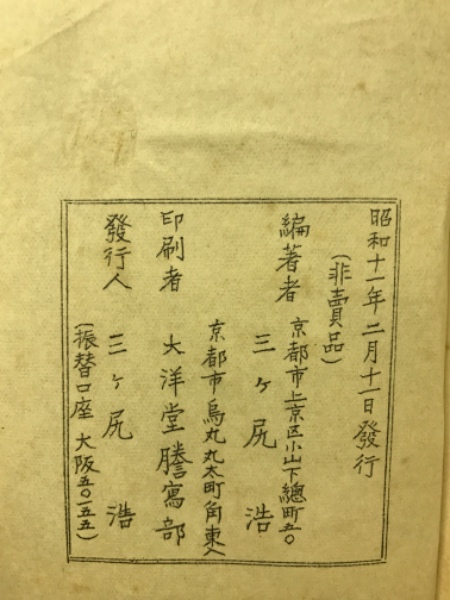 昭和十一年二月十一日發行
(非賣品)
編著者 京都市上京区小山下總町五〇
三ヶ尻浩
京都市烏丸丸太町角東入
印刷者 大洋堂謄寫部
發行人 三ヶ尻浩
(振替口座 大阪五〇一五五)